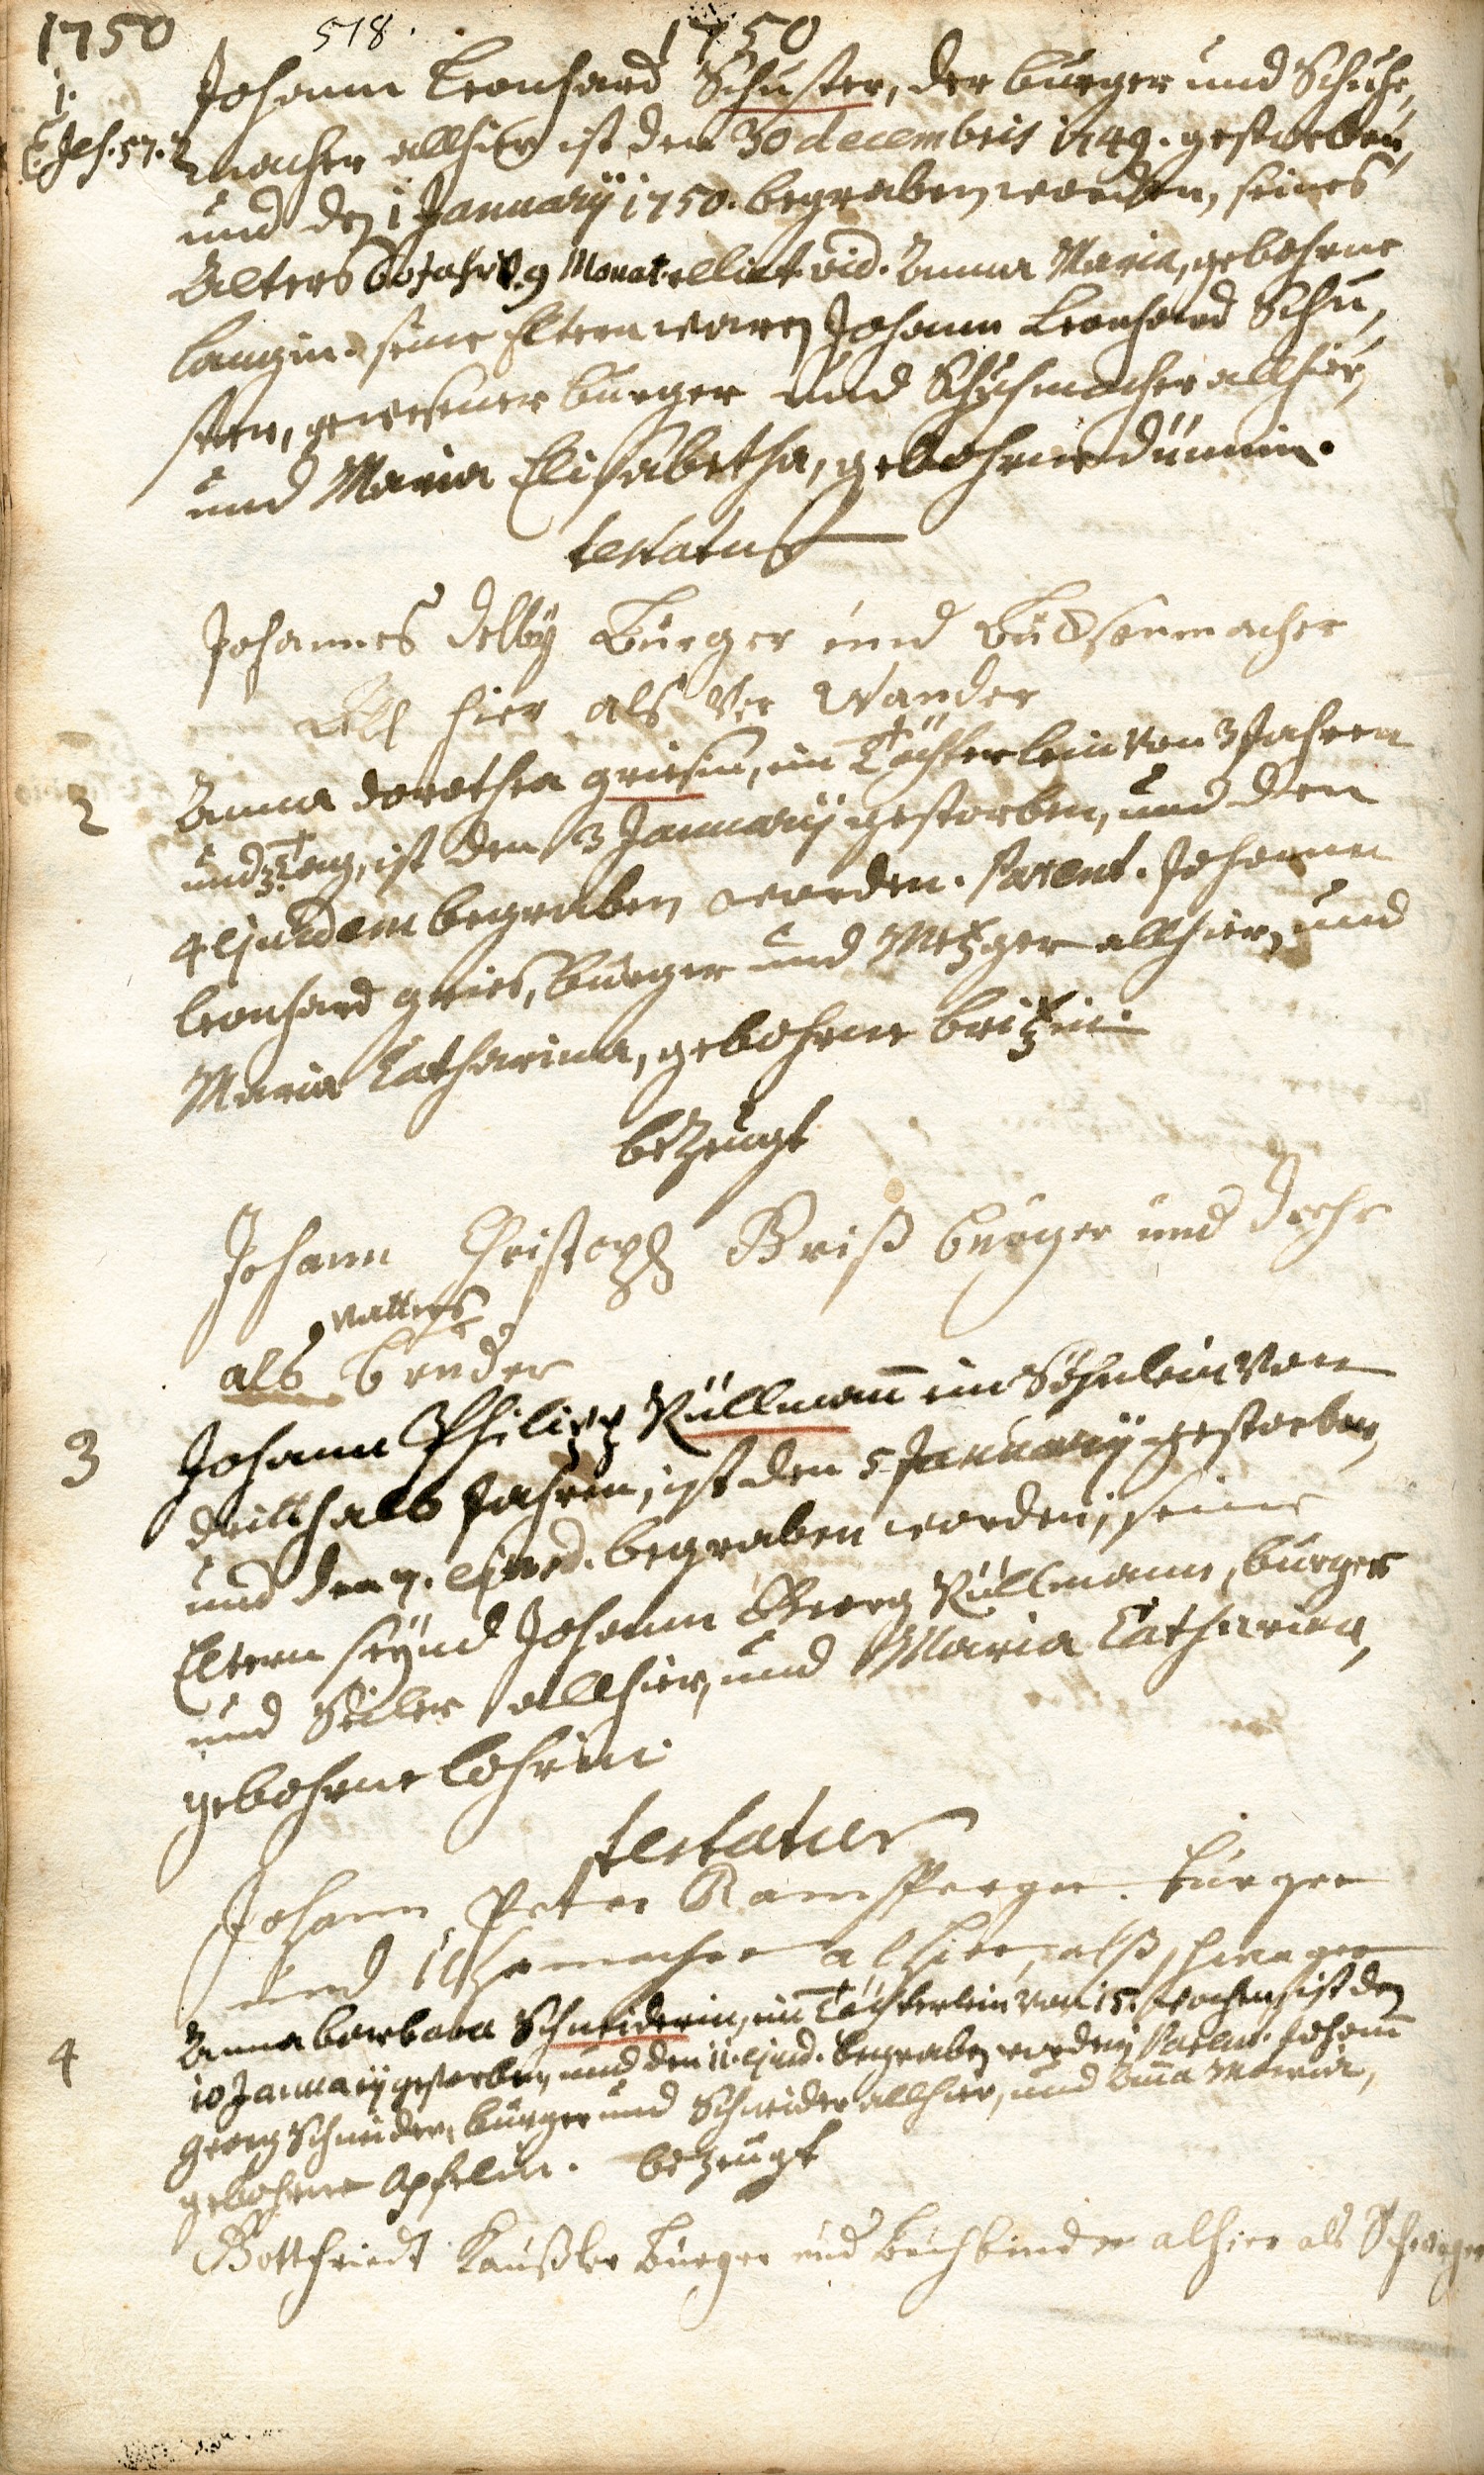 1750 518. 1750
1. Johann Leonhard Schuster, der burger und Schuh,
Jes. 57. 2 macher allhier ist den 30 decembris 1749. gestorben,
und den 1 January 1750. begraben worden, seines
Alters 60 Jahr 9 Monat relict. vid. Anna Maria, gebohrne
Langin. seine Eltern waren Johann Leonhard Schu,
ster, gewesener burger und Schuhmacher allhier,
und Maria Elisabetha, gebohrne dümmin.
testatur
Johannes Burger und Bucsenmacher
All hier als Ver Wander
2 Anna dorothea griesin, ein Töchterlein von 3 Jahren
und 3. Tag, ist den 3 January gestorben, und den
4 ejusdem begraben worden. Parent. Johann
Leonhard gries, burger und Metzger allhier, und
Maria Catharina, gebohrne britzin.
bezeugt
Johann Christoph Briß burger und
vatters
als bruder
3 Johann Philipp Küllmann ein Söhnlein von
dritthalb Jahren, ist den 5 January gestorben,
und den 7. ejusd. begraben worden, seine
Eltern seynd Johann Georg Küllmann, burger
und Seiler allhier, und Maria Catharina,
gebohrne Löhrin.
testatur
Johann Peter Ramsperger. burger
und alhier, alß schwager
4 Anna barbara Schneiderin, ein Töchterlein von 15. Wochen ist den
10 January gestorben, und den 11. ejusd. begraben worden, Parent. Johann
Georg Schneider, burger und Schneider allhier, und Anna Maria,
gebohrne Apfelin. bezeugt
Gottfriedt Kaußler Burger und Buchbinder alhier als Schwager